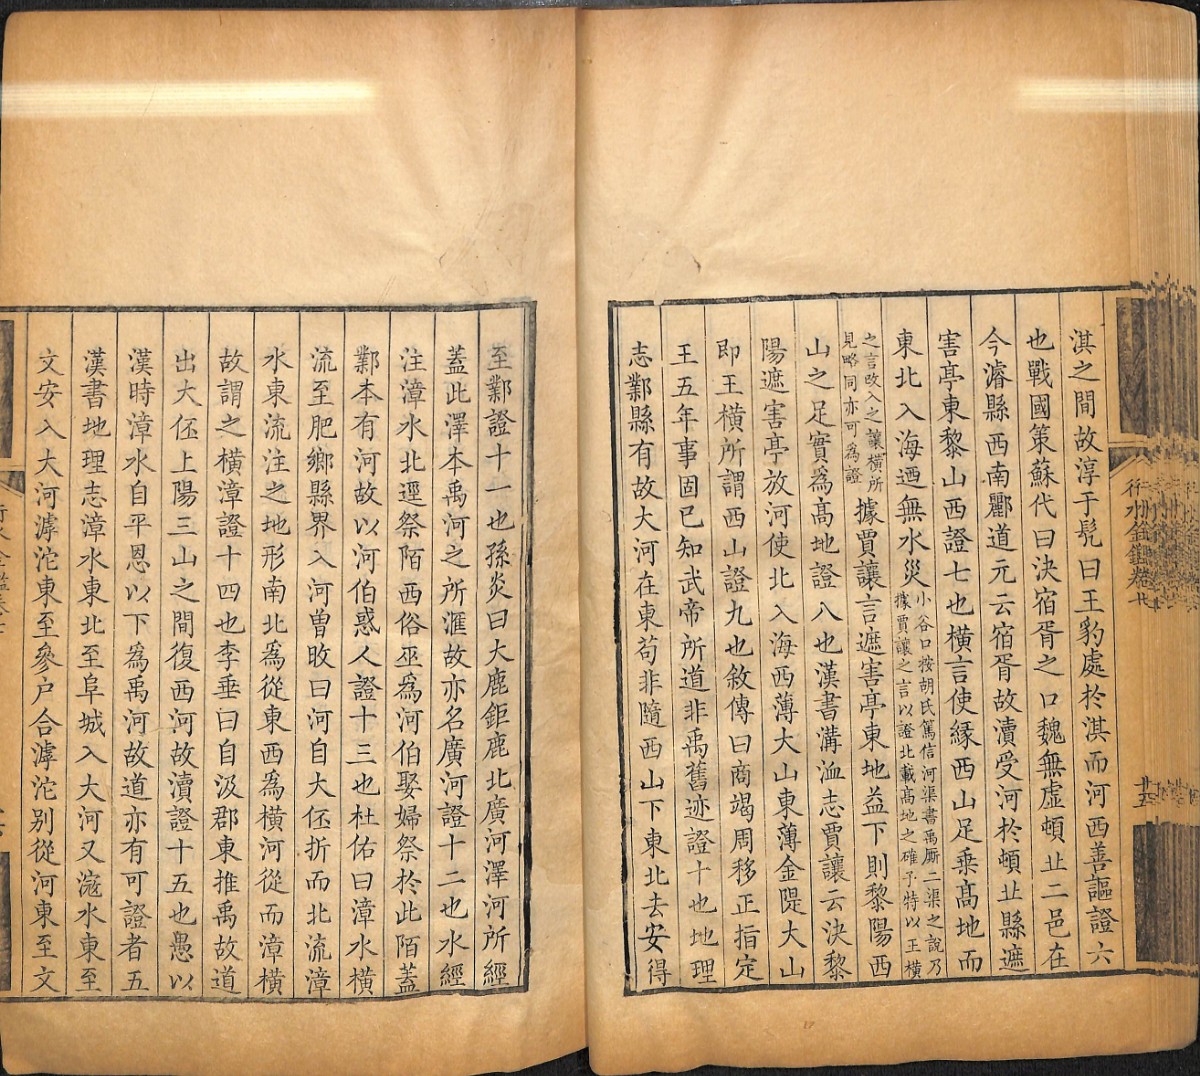 淇之間故淳于髡曰王豹處於淇而河西善謳證六
也戰國策蘇代曰決宿胥之口魏無虛頓丘二邑在
今濬縣西南酈道元云宿胥故瀆受河於頓丘縣遮
害亭東黎山西證七也橫言使緣西山足乗髙地而
東北入海迺無水災小谷口按胡氏篤信河渠書禹厮二渠之說乃
據賈讓之言以證北載髙地之確予特以王橫
之言改入之讓橫所
見略同亦可為證據賈讓言遮害亭東地益下則黎陽西
山之足實為髙地證八也漢書溝洫志賈讓云決黎
陽遮害亭放河使北入海西薄大山東薄金隄大山
即王橫所謂西山證九也敘傳曰商竭周移正指定
王五年事固已知武帝所道非禹舊迹證十也地理
志鄴縣有故大河在東苟非隨西山下東北去安得
行水金鑑卷
廿五
至鄴證十一也孫炎曰大鹿鉅鹿北廣河澤河所經
蓋此澤本禹河之所滙故亦名廣河證十二也水經
注漳水北逕祭陌西俗巫爲河伯娶婦祭於此陌蓋
鄴本有河故以河伯惑人證十三也杜佑曰漳水橫
流至肥鄉縣界入河曽旼曰河自大伾折而北流漳
水東流注之地形南北爲從東西爲橫河從而漳橫
故謂之橫漳證十四也李垂曰自汲郡東推禹故道
出大伾上陽三山之間復西河故瀆證十五也愚以
漢時漳水自平恩以下為禹河故道亦有可證者五
漢書地理志漳水東北至阜城入大河又滱水東至
文安入大河滹沱東至參户合滹沱别從河東至文